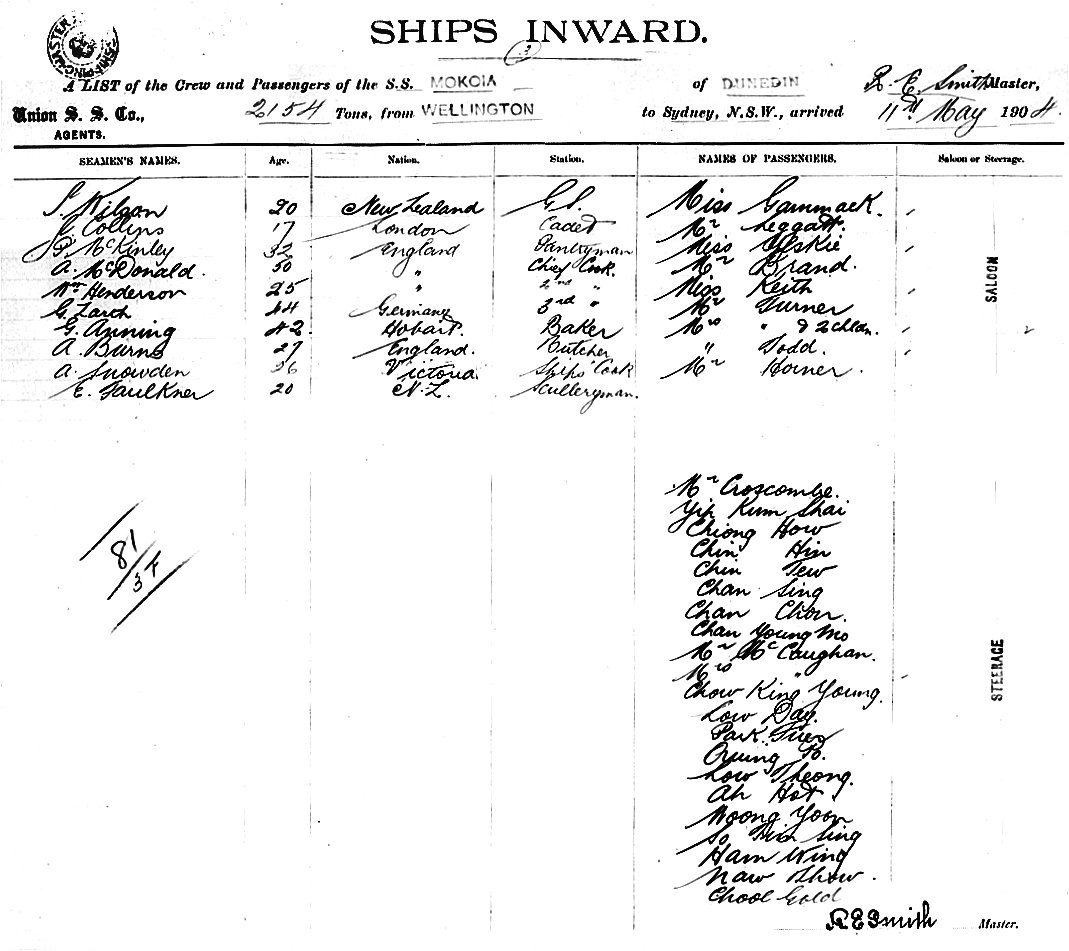 SHIPPING MASTER
SHIPS INWARD.
3
A LIST of the Crew and Passengers of the S.S. MOKOIA of DUNEDIN R. E. Smith Master,
Union S. S. Co., 2154 Tons, from WELLINGTON to Sydney, N.S.W., arrived 11th May 1904.
AGENTS.
SEAMEN'S NAMES. Age. Nation. Station. NAMES OF PASSENGERS. Saloon or Steerage.
Wilson 20 New Zealand G.S. Miss Gammack.
Collins 17 London Cadet Mr Leggatt.
P. McKinley 32 England Pantryman Miss
A. McDonald. 50 " Chief Cook. Mr Brand.
Wm Henderson 25 " 2nd " Miss Keith
G. Zarch 44 Germany 3rd " Mr Turner
G. Anning 42. Hobart. Baker Mrs " & 2 chldn.
A. Burns 27 England. Butcher " Todd.
A. Snowden 36 Victoria Ships' Cook Mr Horner.
E. Faulkner 20 N.Z. Sculleryman.
SALOON
Mr Croscombe.
Yip Kum Shai
Chiong How
Chin Hin
Chin Tew
Chan Sing
Chan Chon.
Chan Young Mo
Mr McCaughan.
Mrs "
Chow King Young.
Low Day.
Park
To.
Low Theong.
Ah Hot.
Woong Yoon
So Sing
Ham Wing
Naw Show.
Chool Gold
STEERAGE
81
R E Smith Master.